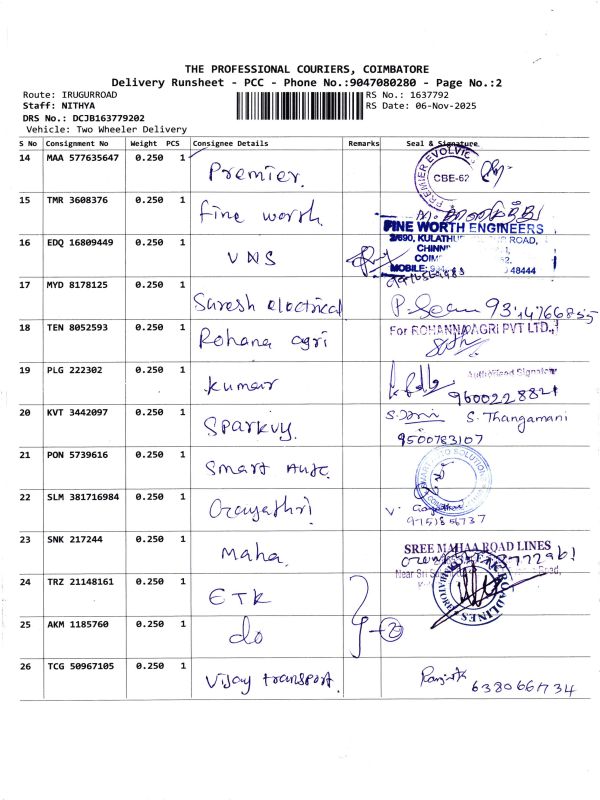 THE PROFESSIONAL COURIERS, COIMBATORE
Delivery Runsheet - PCC - Phone No.:9047080280 - Page No.:2
Route: IRUGURROAD
RS No.: 1637792
Staff: NITHYA
RS Date: 06-Nov-2025
DRS No.: DCJB163779202
Vehicle: Two Wheeler Delivery
S No Consignment No Weight PCS Consignee Details Remarks Seal & Signature
14 MAA 577635647 0.250 1 Premier. PREMIER EVOLVICS CBE-62
15 TMR 3608376 0.250 1 fine worth
FINE WORTH ENGINEERS
2/690, ROAD,
16 EDQ 16809449 0.250 1 VNS
MOBILE: 48444
17 MYD 8178125 0.250 1 Suresh electrical
18 TEN 8052593 0.250 1 Rohana agri For ROHANNAAGRI PVT LTD.,
19 PLG 222302 0.250 1 kumar Authorised Signatory
9600228821
20 KVT 3442097 0.250 1 Sparkvy. S. Thangamani
9500783107
21 PON 5739616 0.250 1 Smart Auto.
22 SLM 381716984 0.250 1 Gayathri Gayathri
23 SNK 217244 0.250 1 Maha. SREE MAHAA ROAD LINES
24 TRZ 21148161 0.250 1 ETK
25 AKM 1185760 0.250 1 do 2
26 TCG 50967105 0.250 1 Vijay transport. Ranjith